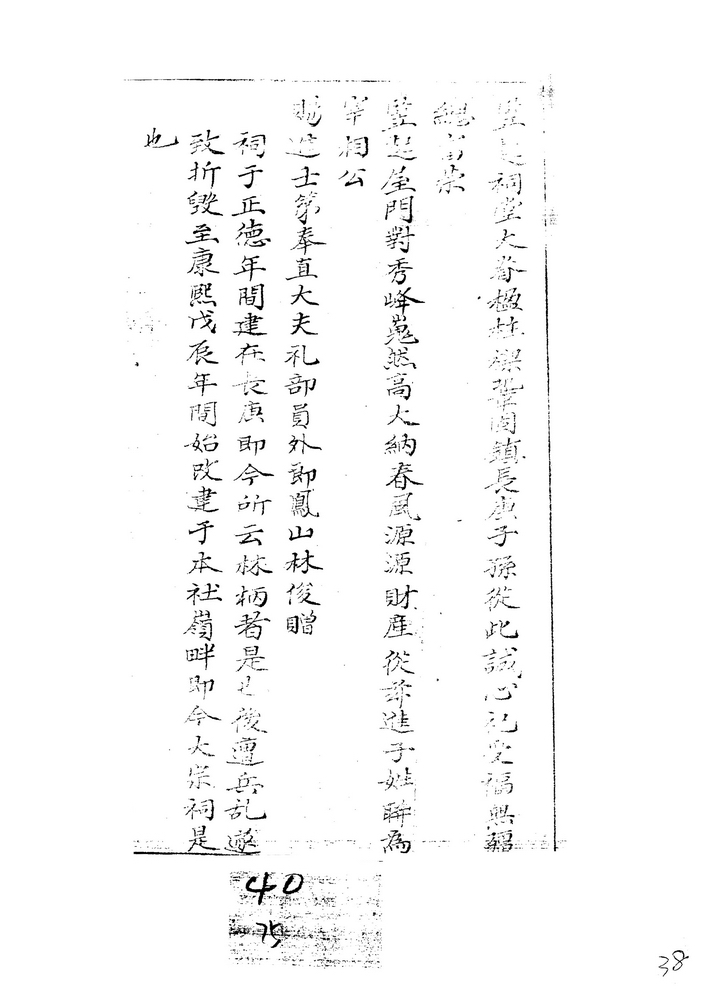 竪起祠堂大脊楹柱樑鞏固鎮長庚子孫從此誠心祀受福無疆
總富榮
竪起屋門對秀峰巍然高大納春風源源財產從茲進子姓聯為
宰相公
賜進士第奉直大夫礼部員外郎鳳山林俊贈
祠于正德年間建在長庚即今所云林柄者是也後遭兵乱遂
致折毀至康熙戊辰年間始改建于本社嶺畔即今大宗祠是
也
40
75
38